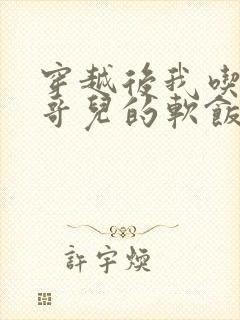 穿越後我喫
哥兒的軟飯
許宇煐